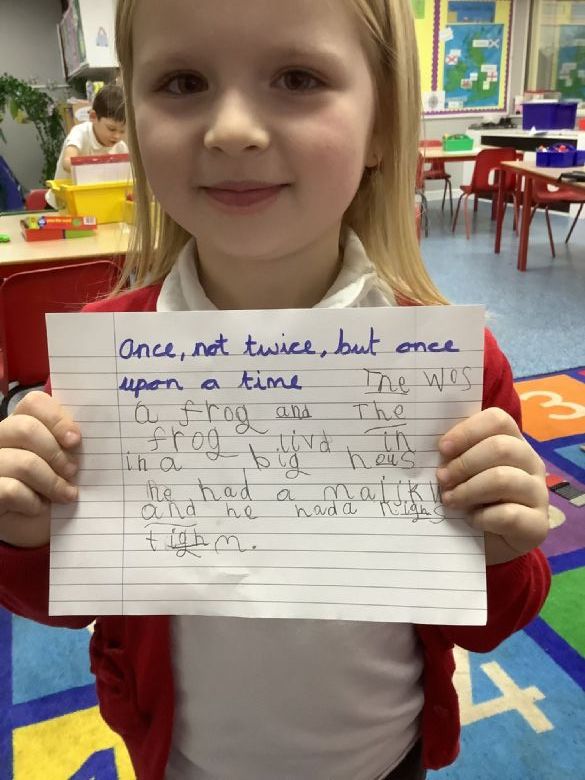 Once, not twice, but once
upon a time The Wos
a frog and The
frog livd in
in a big hous
he had a majik
and he had a nighs
tighm.